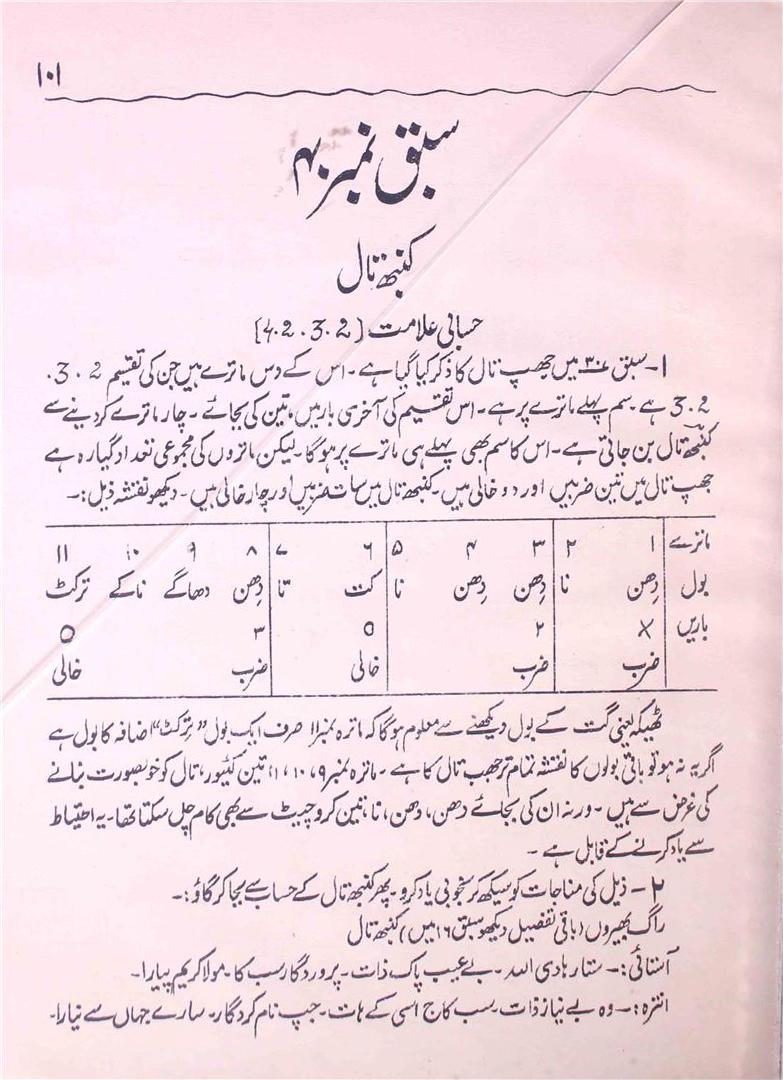 ۱۰۱
سبق نمبر ۴۰
کنبھ تال
حسابی علامت (2 . 3 . 2 . 4)
۱- سبق ۳۰ میں جھپ تال کا ذکر کیا گیا ہے۔ اس کے دس ماترے ہیں جن کی تقسیم 2 . 3 .
2 . 3 ہے۔ سم پہلے ماترے پر ہے۔ اس تقسیم کی آخری بار میں، تین کی بجائے۔ چار ماترے کر دینے سے
کنبھ تال بن جاتی ہے۔ اس کا سم بھی پہلے ہی ماترے پر ہوگا۔ لیکن ماتروں کی مجموعی تعداد گیارہ ہے
جھپ تال میں تین ضربیں اور دو خالی ہیں۔ کنبھ تال میں سات ضربیں اور چار خالی ہیں۔ دیکھو نقشہ ذیل:۔
ماترے ۱ ۲ ۳ ۴ ۵ ۶ ۷ ۸ ۹ ۱۰ ۱۱
بول دِھن نا دِھن دِھن نا کت تا دِھن دھاگے ناکے ترکٹ
باریں × ۲ ○ ۳ ○
ضرب ضرب خالی ضرب خالی
ٹھیکہ یعنی گت کے بول دیکھنے سے معلوم ہوگا کہ ماترہ نمبر ۱۱ صرف ایک بول "ترکٹ" اضافہ کا بول ہے
اگر یہ نہ ہو تو باقی بولوں کا نقشہ تمام تر جھپ تال کا ہے۔ ماترہ نمبر ۹، ۱۰، ۱۱ تین کئیور، تال کو خوبصورت بنانے
کی غرض سے ہیں۔ ورنہ ان کی بجائے دھن، دھن، نا، تین کروچیٹ سے بھی کام چل سکتا تھا۔ یہ احتیاط
سے یاد کرنے کے قابل ہے۔
۲- ذیل کی مناجات کو سیکھ کر بخوبی یاد کرو۔ پھر کنبھ تال کے حساب سے بجا کر گاؤ:۔
راگ بھیروں (باقی تفصیل دیکھو سبق ۱۶ میں) کنبھ تال
آستائی:۔ ستار ہادی اللہ۔ بے عیب پاک ذات۔ پروردگار سب کا۔ مولا کریم پیارا۔
انترہ:۔ وہ بے نیاز ذات۔ سب کاج اسی کے ہات۔ جپ نام کردگار۔ سارے جہاں سے نیارا۔